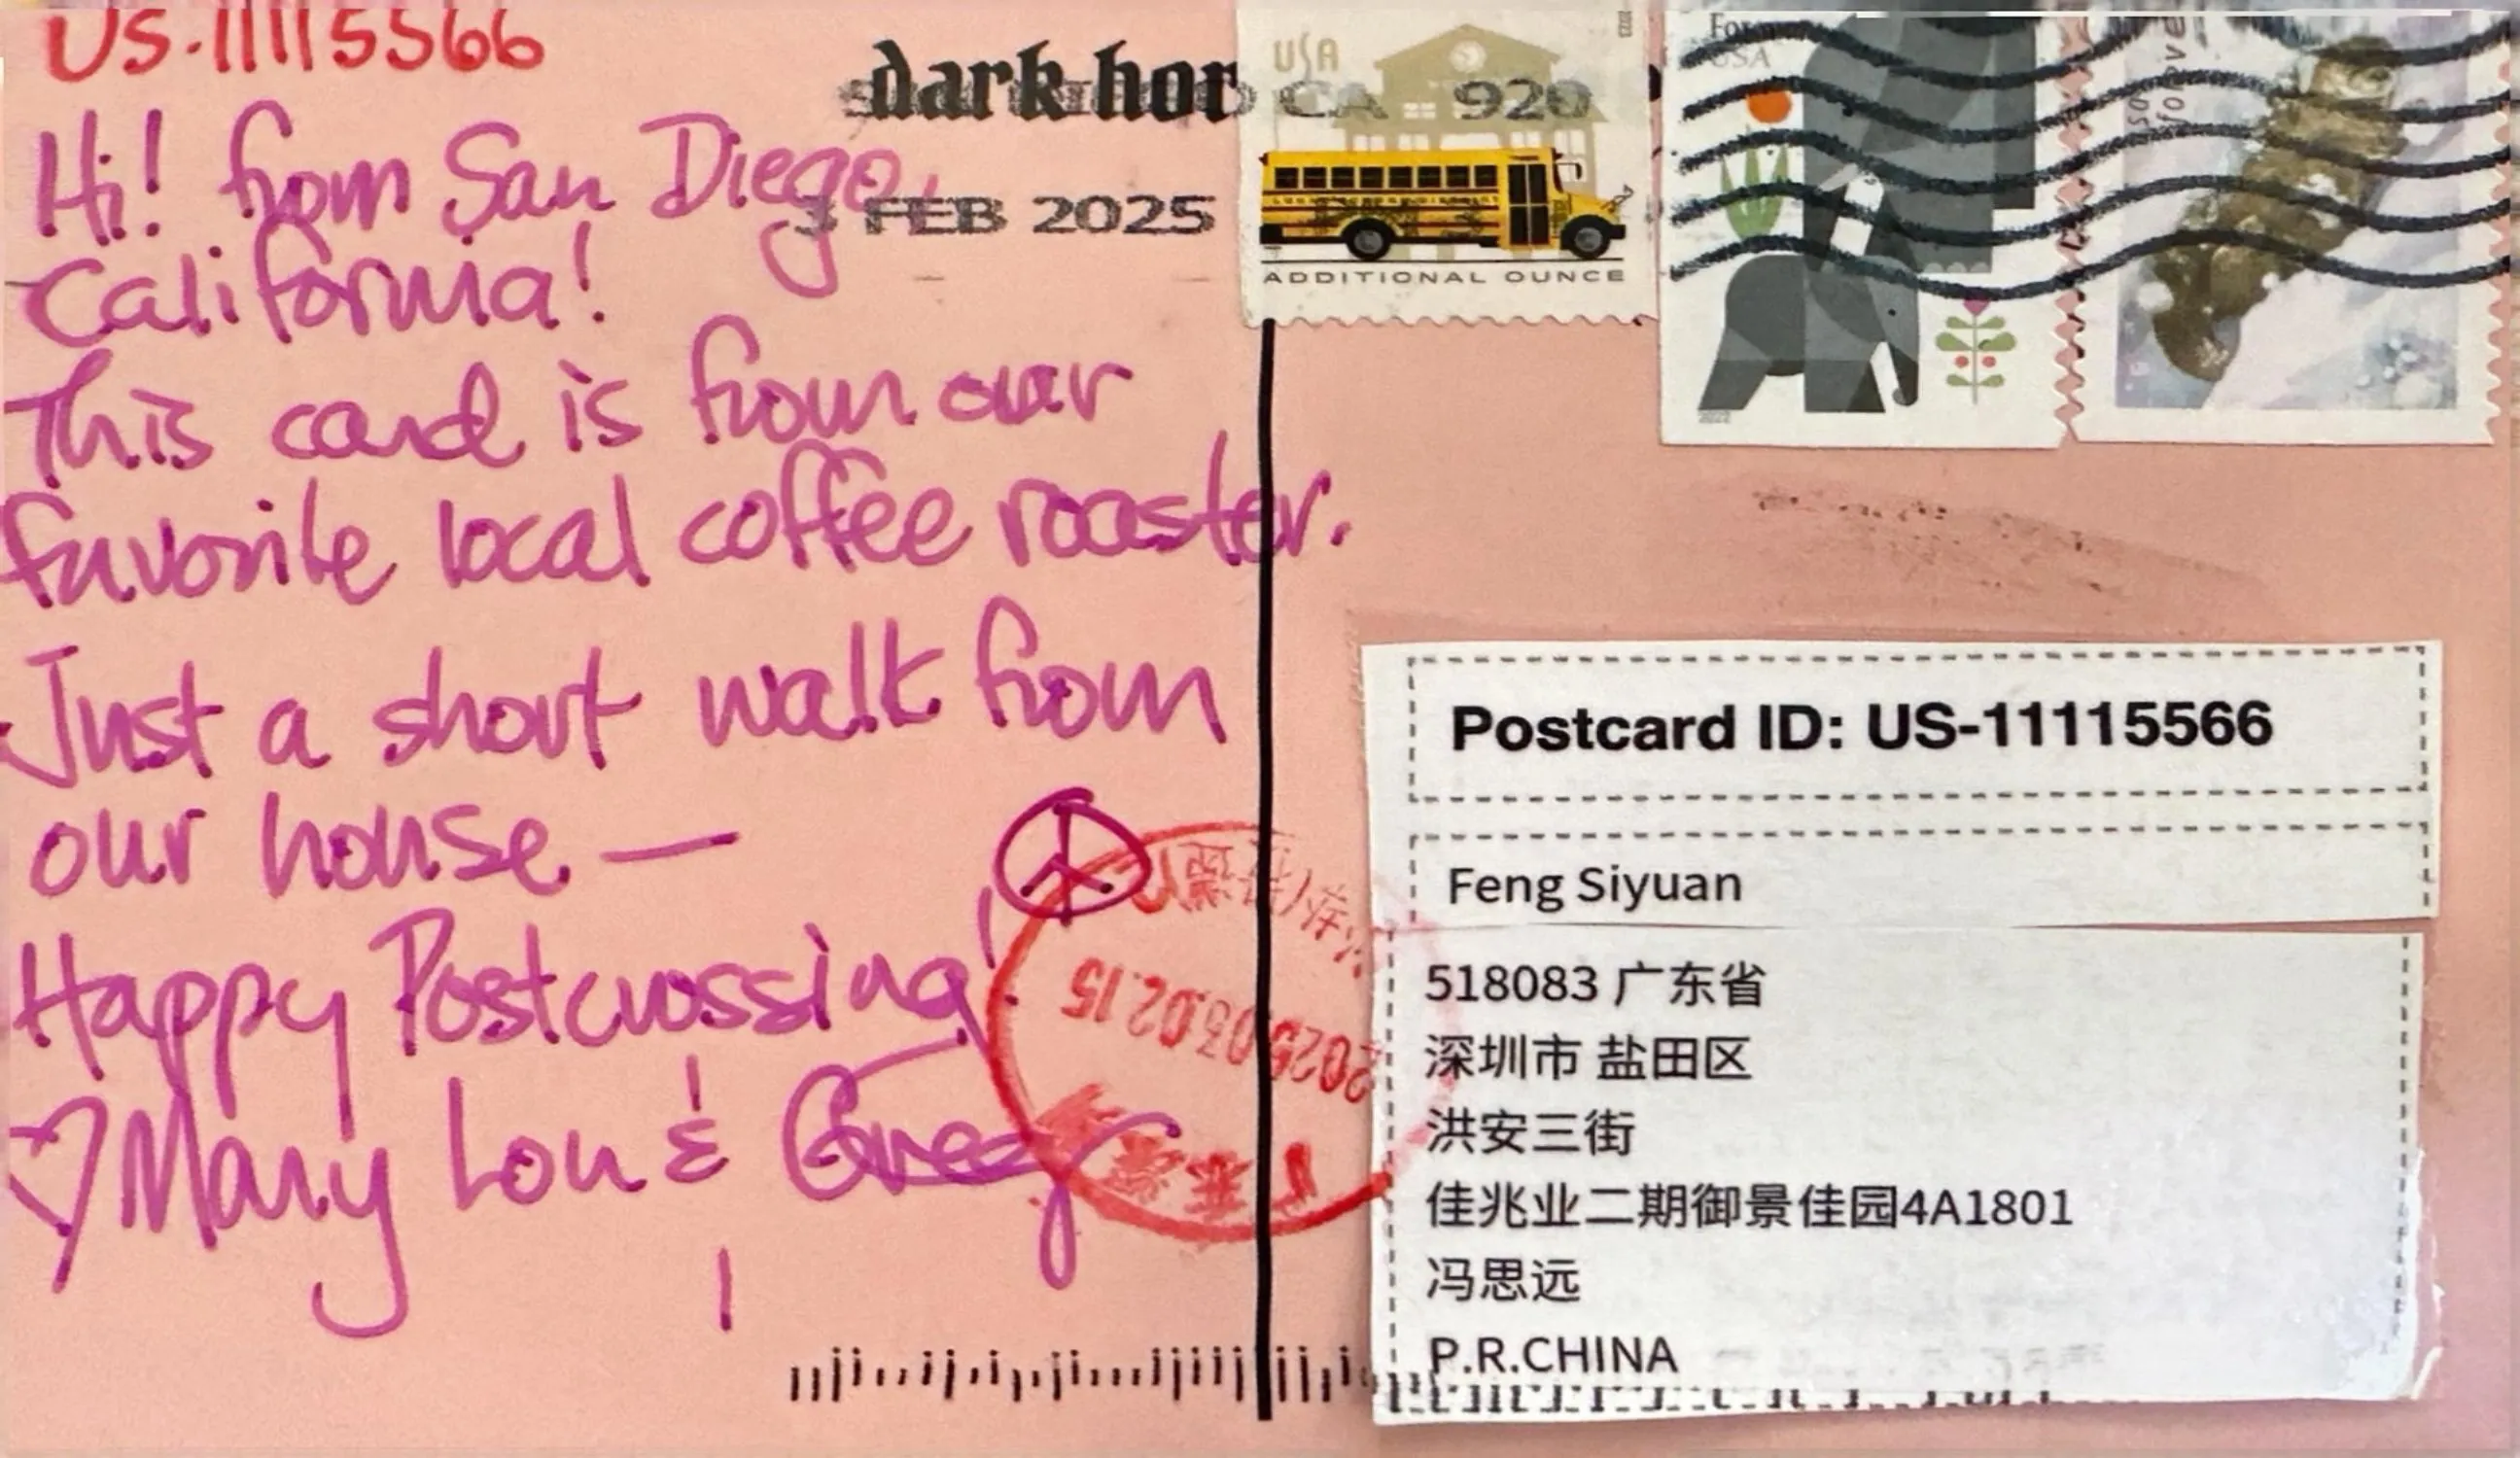 US-11115566
Hi! from San Diego,
California!
This card is from our
favorite local coffee roaster.
Just a short walk from
our house —
Happy Postcrossing!
♡ Mary Lou & Greg
dark hor
CA 920
3 FEB 2025
USA
ADDITIONAL OUNCE
USA
2022
forever
Postcard ID: US-11115566
Feng Siyuan
518083 广东省
深圳市 盐田区
洪安三街
佳兆业二期御景佳园4A1801
冯思远
P.R.CHINA
2025.03.02.15
广东深